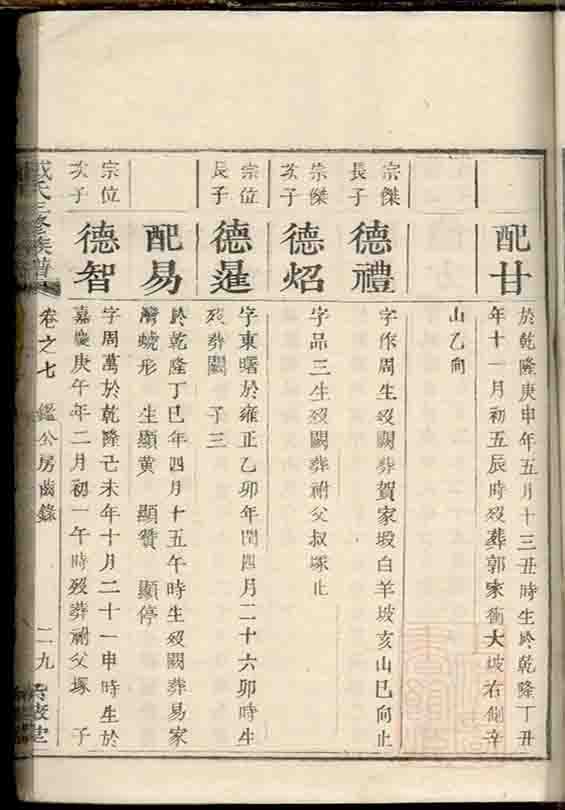 配甘
於乾隆庚申年五月十三丑時生於乾隆丁丑
年十一月初五辰時歿葬郭家衝大坡右側辛
山乙向
宗傑
長子
德禮
字作周生歿闕葬賀家垻白羊坡亥山巳向止
宗傑
次子
德炤
字品三生歿闕葬祔父叔塚止
宗位
長子
德暹
字東曙於雍正乙卯年閏四月二十六卯時生
歿葬闕 子三
配易
於乾隆丁巳年四月十五午時生歿闕葬易家
灣蜣形 生顯黄 顯贊 顯停
宗位
次子
德智
字周萬於乾隆己未年十月二十一申時生於
嘉慶庚午年二月初一午時歿葬祔父塚 子
氏三修族譜
卷之七 鑑公房齒錄
二九